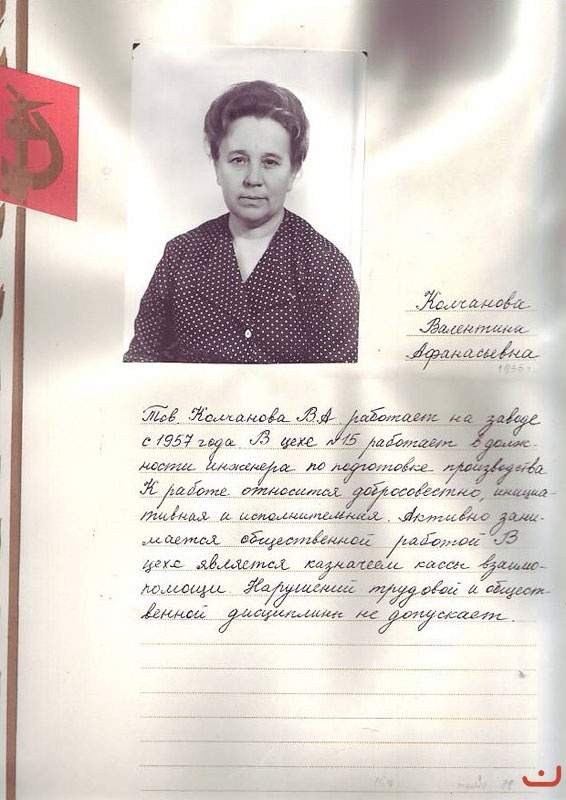 Колчанова
Валентина
Афанасьевна
Тов. Колчанова В.А работает на заводе
с 1957 года. В цехе №15 работает в долж-
ности инженера по подготовке производства
К работе относится добросовестно, инициа-
тивная и исполнительная. Активно зани-
мается общественной работой. В
цехе является казначеем кассы взаимо-
помощи. Нарушений трудовой и общест-
венной дисциплины не допускает.